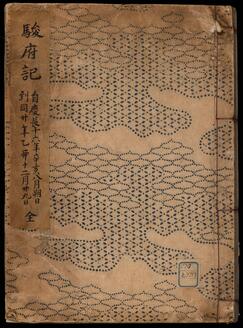 駿府記
自慶長十六年辛亥八月朔日
到同廿年乙卯十二月廿九日
全